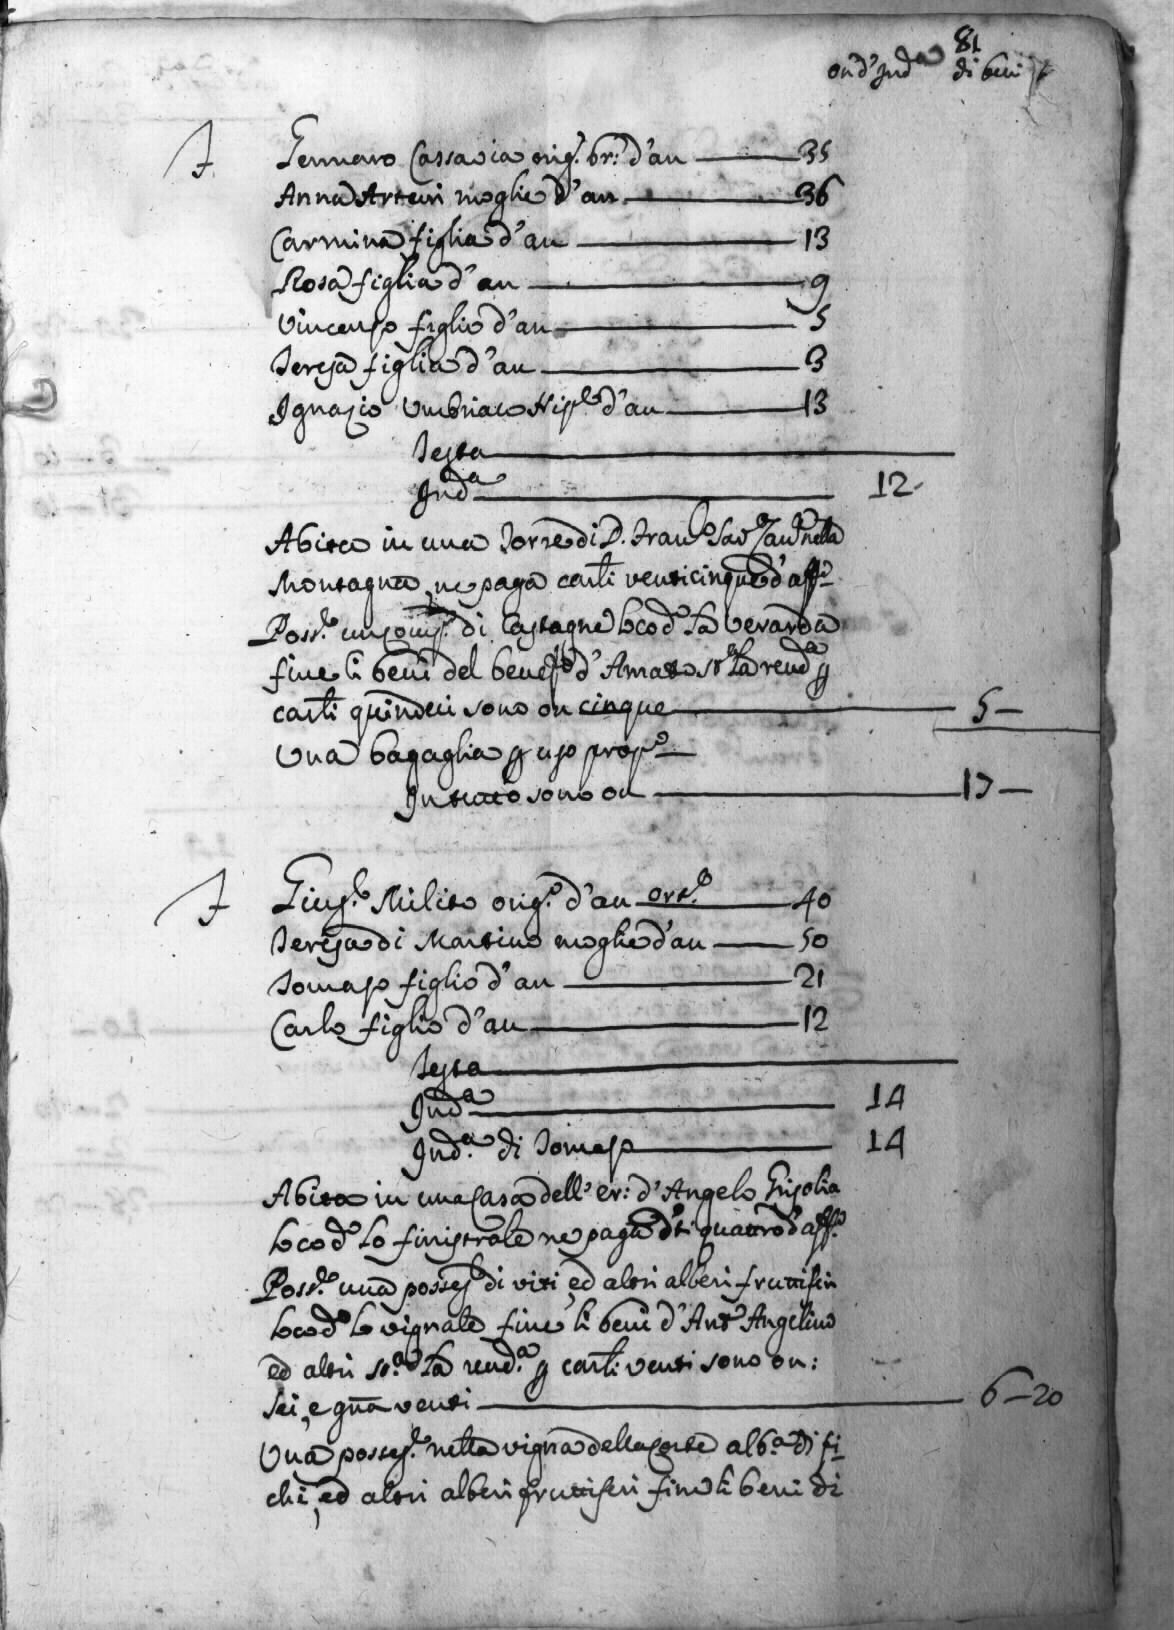 81
on: d'Ind.a di beni
Gennaro Cassavia orig.o br: d'an 35
Anna Arturi moglie d'an 36
Carmina figlia d'an 13
Rosa figlia d'an 9
Vincenzo figlio d'an 5
Teresa figlia d'an 3
Ignazio Umbriaco d'an 13
Testa
Ind.a 12
Abita in una Torre di D. Fran.co Sav.o nella
Montagna, ne paga carli venticinque d'aff.o
Poss.e un di Castagne loco d.o la Veranda
fine li beni del benef.o d'Amato st.a la rend.a p
carli quindeci sono on cinque 5 —
Una bagaglia p uso prop.o
In tutto sono on 17 —
Gius.e Milito orig.o d'an ort.o 40
Teresa di Martino moglie d'an 50
Tomaso figlio d'an 21
Carlo figlio d'an 12
Testa
Ind.a 14
Ind.a di Tomaso 14
Abita in una casa dell'er: d'Angelo Grisolia
loco d.o lo finistrale ne paga d.ti quattro d'aff.o
Poss.e una posses.e di viti, ed altri alberi fruttiferi
loco d.o lo vignale fine li beni d'Ant.o Angelino
ed altri st.a la rend.a p carli: venti sono on:
sei, e gna venti 6 — 20
Una posses.e nella vigna della corte alb.a di fi-
chi, ed altri alberi fruttiferi fine li beni di